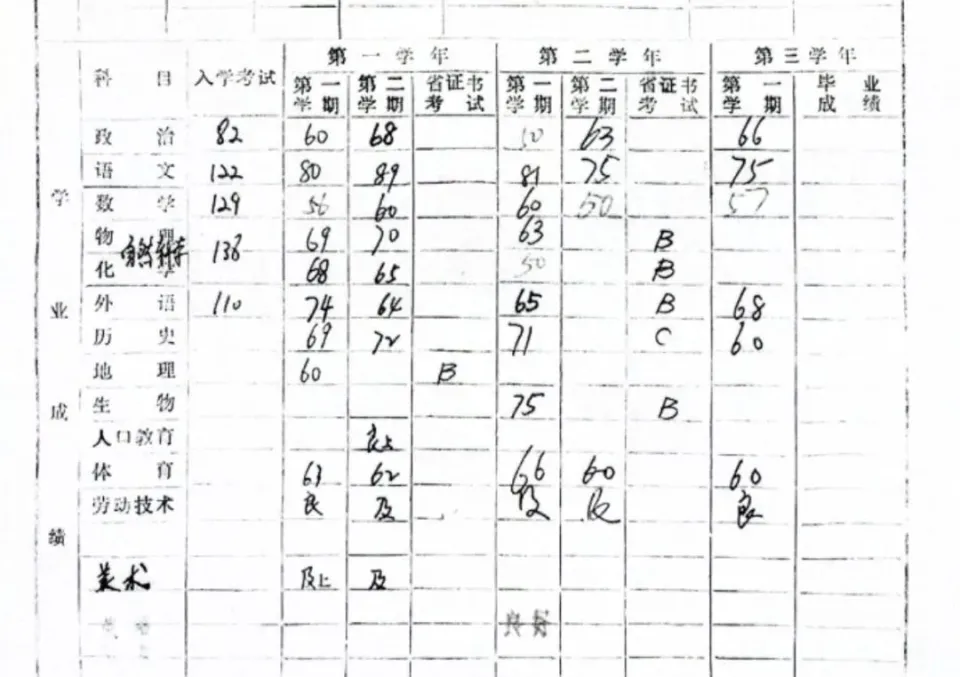 第一学年 第二学年 第三学年
科目 入学考试 第一学期 第二学期 省证书考试 第一学期 第二学期 省证书考试 第一学期 毕业成绩
学业成绩
政治 82 60 68 50 63 66
语文 122 80 89 81 75 75
数学 129 56 60 60 50 57
物理 69 70 63 B
自然 138
化学 68 65 50 B
外语 110 74 64 65 B 68
历史 69 72 71 C 60
地理 60 B
生物 75 B
人口教育 良上
体育 63 62 66 60 60
劳动技术 良 及 及 及 良
美术 及上 及
良好